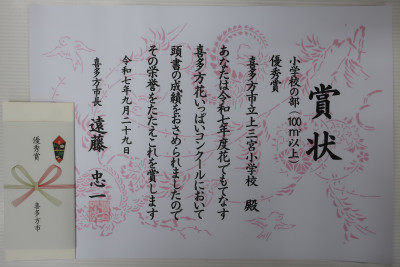 賞状
小学校の部(100㎡以上)
優秀賞
喜多方市立上三宮小学校 殿
あなたは令和七年度花でもてなす
喜多方花いっぱいコンクールにおいて
頭書の成績をおさめられましたので
その栄誉をたたえこれを賞します
令和七年九月二十九日
喜多方市長 遠藤忠一
優秀賞
喜多方市